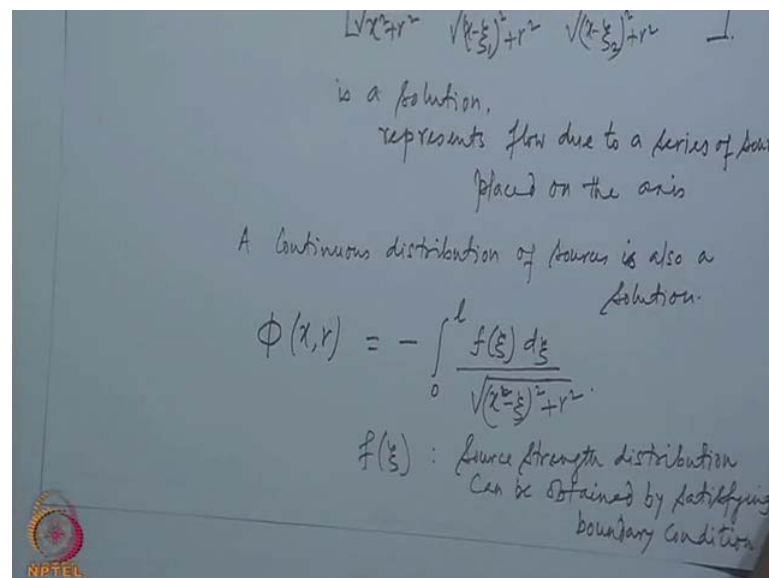 [√x²+r² √(x-ξ₁)²+r² √(x-ξ₂)²+r² ].
is a solution,
represents flow due to a series of sour
placed on the axis
A Continuous distribution of sources is also a
solution.
Φ(x,r) = - ∫₀ˡ f(ξ) dξ / √(x-ξ)²+r² .
f(ξ) : Source strength distribution
Can be obtained by satisfying
boundary condition
NPTEL